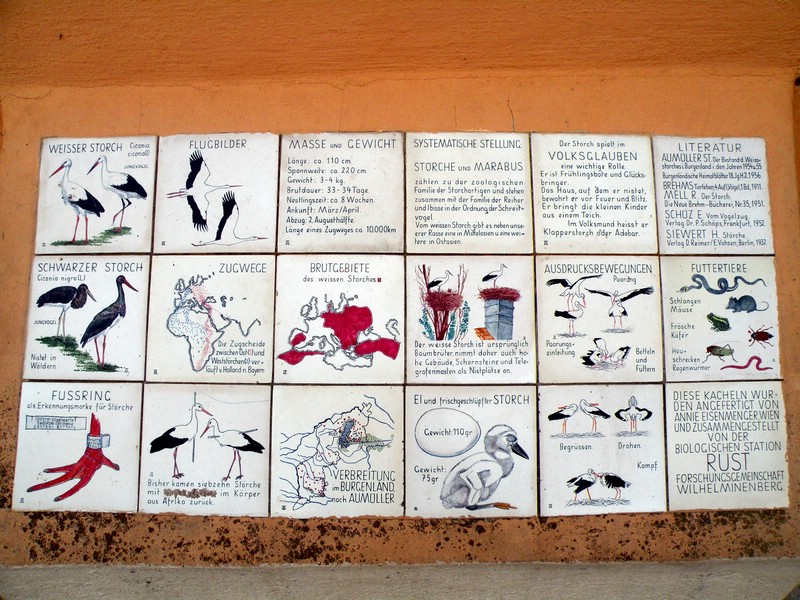 WEISSER STORCH
Ciconia
ciconia(l)
JUNGVOGEL
FLUGBILDER
MASSE UND GEWICHT
Länge: ca. 110 cm.
Spannweite: ca. 220 cm.
Gewicht: 3-4 kg.
Brutdauer: 33-34 Tage.
Nestlingszeit: ca 8 Wochen.
Ankunft: März/April.
Abzug: 2. Augusthälfte.
Länge eines Zugweges ca. 10.000km
SYSTEMATISCHE STELLUNG.
STÖRCHE UND MARABUS
zählen zu der zoologischen
Familie der Storchartigen und stehen
zusammen mit der Familie der Reiher
und Ibisse in der Ordnung der Schreit-
vogel.
Vom weissen Storch gibt es neben unse-
rer Rasse eine in Mittelasien u. eine wei-
tere in Ostasien.
Der Storch spielt im
VOLKSGLAUBEN
eine wichtige Rolle.
Er ist Frühlingsbote und Glücks-
bringer.
Das Haus, auf dem er nistet,
bewahrt er vor Feuer und Blitz.
Er bringt die kleinen Kinder
aus einem Teich.
Im Volksmund heisst er
Klapperstorch oder Adebar.
LITERATUR
AUMÜLLER ST. Der Bestand d. Weiss-
storches i. Burgenland i. den Jahren 1954 u. 55
Burgenländische Heimatblätter 18. Jg. H.2. 1956.
BREHMS Tierleben 4. Aufl. (Vögel) 1. Bd. 1911.
MELL R. Der Storch.
Die Neue Brehm-Bücherei, Nr. 35, 1951.
SCHÜZ E. Vom Vogelzug.
Verlag Dr. P. Schöps, Frankfurt, 1952.
SIEWERT H. Störche.
Verlag D. Reimer/E. Vohsen, Berlin, 1932
SCHWARZER STORCH
Ciconia nigra (L.)
JUNGVOGEL
Nistet in
Wäldern.
ZUGWEGE
Die Zugscheide
zwischen Ost(I) und
Weststörchen(II) ver-
läuft v. Holland n. Bayern
BRUTGEBIETE
des weissen Storches
Der weisse Storch ist ursprünglich
Baumbrüter, nimmt daher auch ho-
he Gebäude, Schornsteine und Tele-
grafenmasten als Nistplätze an.
AUSDRUCKSBEWEGUNGEN
Paarung
Paarungs-
einleitung
Betteln
und
Füttern
FUTTERTIERE
Schlangen
Mäuse
Frösche
Käfer
Heu-
schrecken
Regenwürmer
FUSSRING
als Erkennungsmarke für Störche
Bisher kamen siebzehn Störche
mit im Körper
aus Afrika zurück.
VERBREITUNG
IM BURGENLAND
nach AUMÜLLER
EI und frischgeschlüpfter STORCH
Gewicht: 110 gr
Gewicht:
75 gr
Begrüssen.
Drohen.
Kampf
DIESE KACHELN WUR-
DEN ANGEFERTIGT VON
ANNE EISENMENGER WIEN
UND ZUSAMMENGESTELLT
VON DER
BIOLOGISCHEN STATION
RUST
FORSCHUNGSGEMEINSCHAFT
WILHELMINENBERG